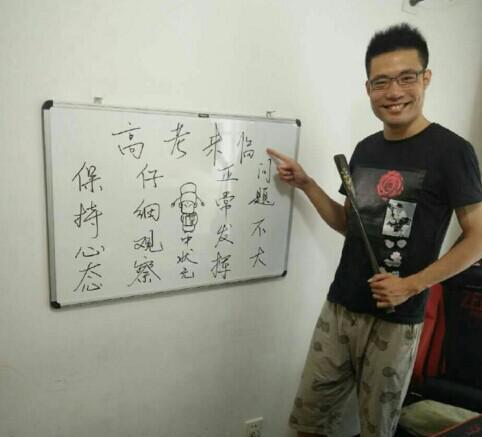 高考来临
保持心态
仔細观察
中状元
正常发挥
问题不大